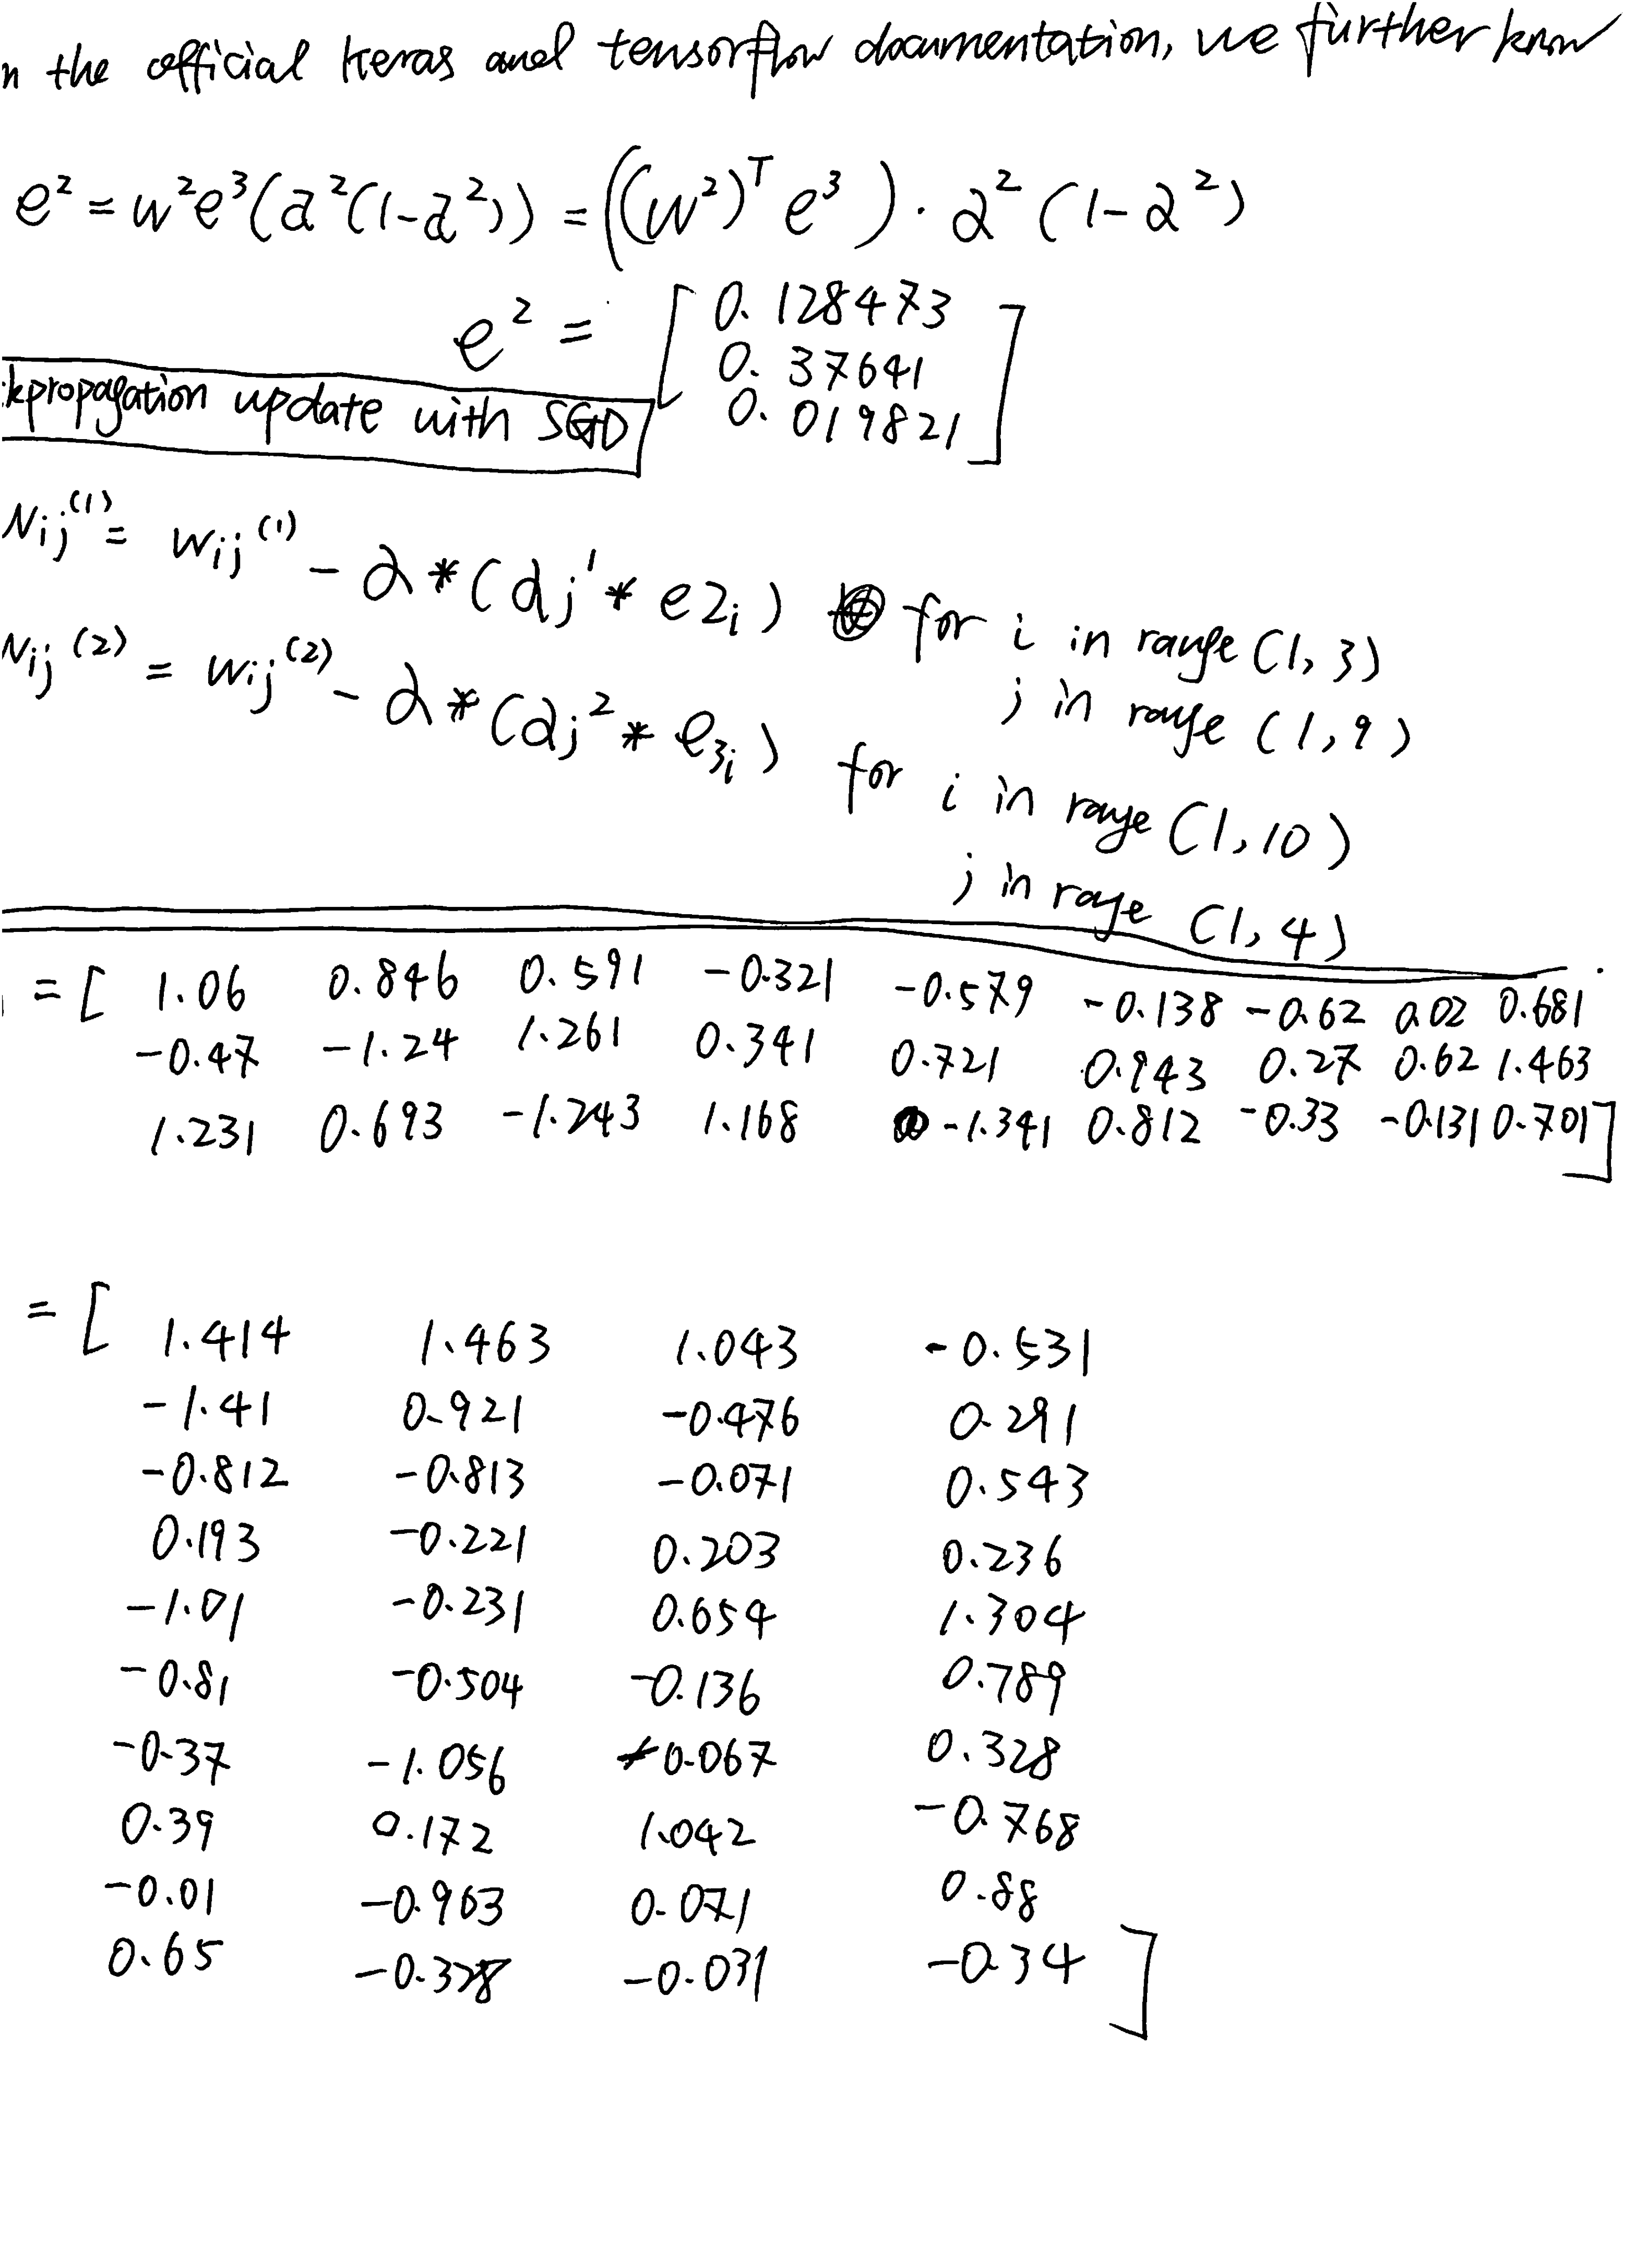 n the official keras and tensorflow documentation, we further know
e² = w²e³(a²(1-a²)) = ((w²)ᵀ e³) · a² (1-a²)
e² = [ 0.128473
0.37641
0.019821 ]
kpropagation update with SGD
Wij⁽¹⁾ = wij⁽¹⁾ - α * (aj¹ * e2i) for i in range (1, 3)
j in range (1, 9)
Wij⁽²⁾ = wij⁽²⁾ - α * (aj² * e3i) for i in range (1, 10)
j in range (1, 4)
= [ 1.06 0.846 0.591 -0.321 -0.579 -0.138 -0.62 0.02 0.681
-0.47 -1.24 1.261 0.341 0.721 0.943 0.27 0.62 1.463
1.231 0.693 -1.243 1.168 -1.341 0.812 -0.33 -0.131 0.701 ]
= [ 1.414 1.463 1.043 -0.531
-1.41 0.921 -0.476 0.291
-0.812 -0.813 -0.071 0.543
0.193 -0.221 0.203 0.236
-1.01 -0.231 0.654 1.304
-0.81 -0.504 -0.136 0.789
-0.37 -1.056 0.067 0.328
0.39 0.172 1.042 -0.768
-0.01 -0.963 0.071 0.88
0.65 -0.328 -0.031 -0.34 ]